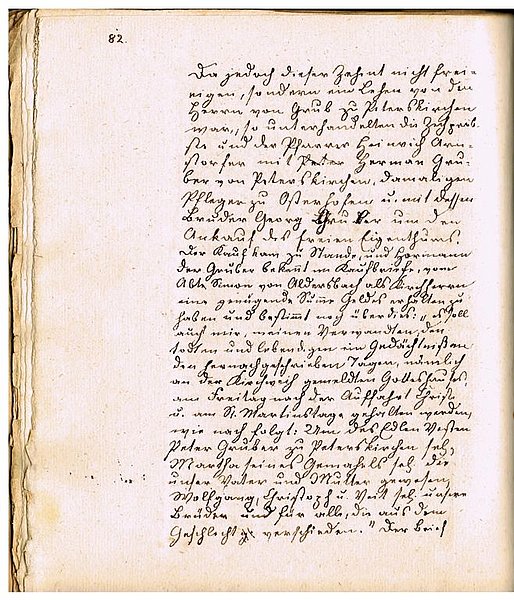 82.
Da jedoch dieser Zehent nicht frei-
eigen, sondern ein Lehen von den
Herrn von Grub zu Peterskirchen
war, so unterhandelten die Zechpröb-
ste und der Pfarrer Heinrich Arn-
storfer mit Peter Herman Gru-
ber von Peterskirchen, damaligen
Pfleger zu Osterhofen u. mit dessen
Bruder Georg Gruber um den
Ankauf des freien Eigenthums.
Der Kauf kam zu Stande, und Hermann
der Gruber bekennt im Kaufbriefe, vom
Abte Simon von Aldersbach als Kirchherrn
eine genügende Summe Geldes erhalten zu
haben und bestimmt noch überdies: „es soll
auch mir, meinen Verwandten, den
todten und lebendigen ein Gedächtniß an
den hernach geschrieben Tagen, nämlich
an der Kirchweih gemeldten Gotteshauses,
am Freitag nach der Auffahrt Christi
u. am St. Martinstage gehalten werden,
wie nach folgt: Um des Edlen Vesten
Peter Gruber zu Peterskirchen sel,
Martha seines Gemahels sel. die
unser Vater und Mutter gewesen,
Wolfgang, Christoph u. Veit sel. unsere
Brüder und für alle, die aus dem
Geschlecht verschieden." Der Brief